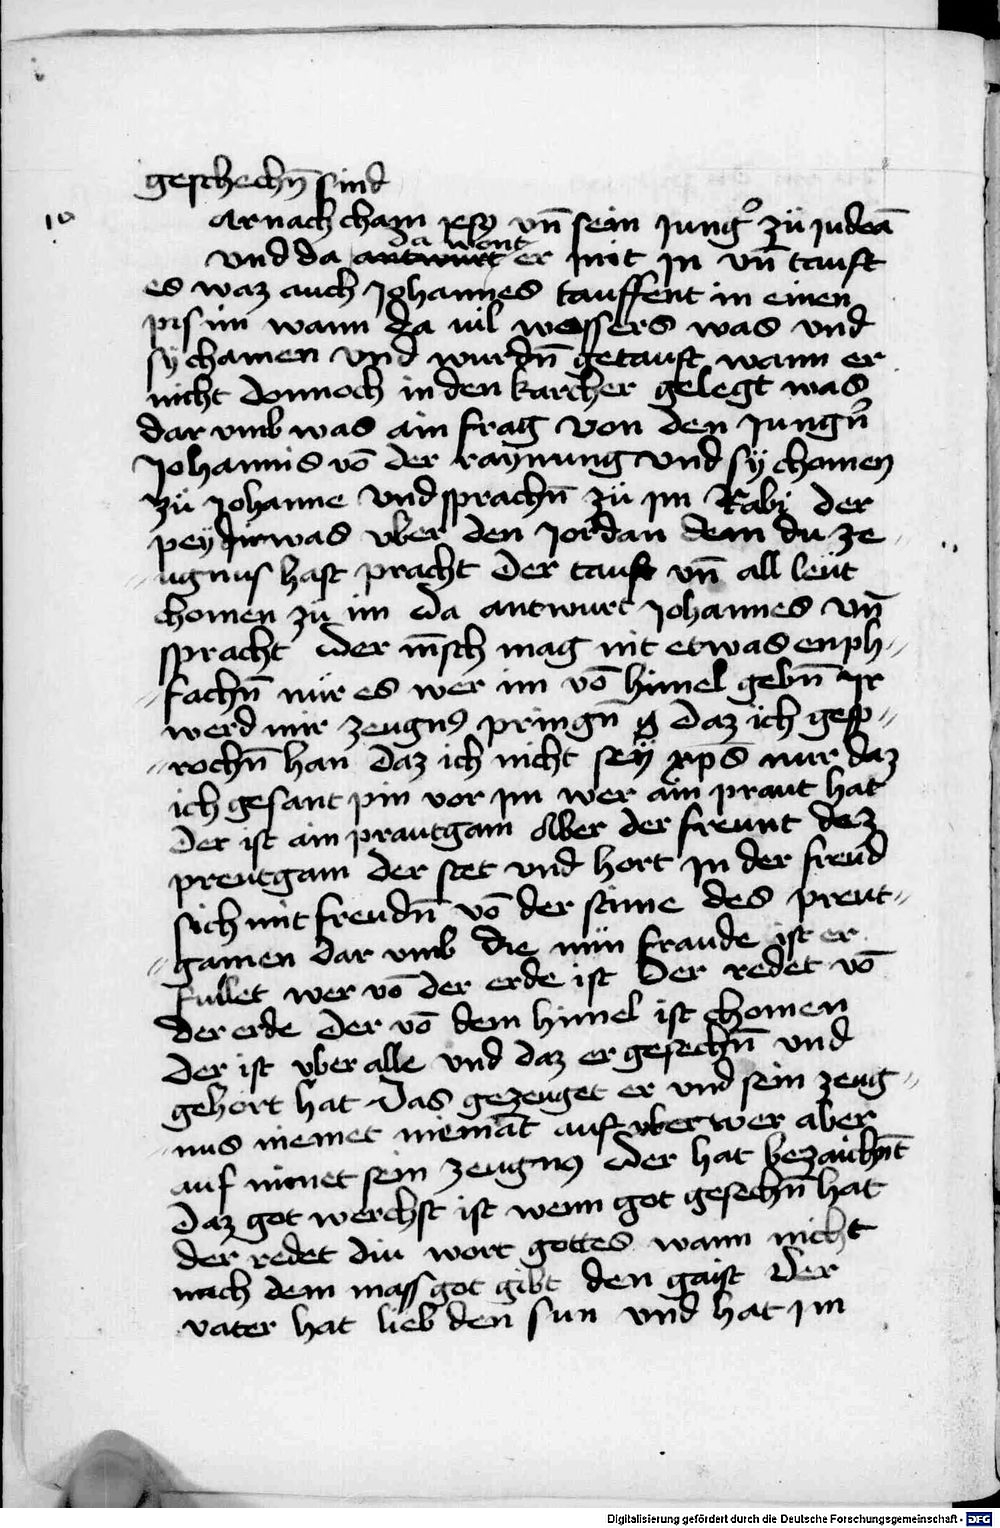 geschechn̄ sind
10
Arnach cham xp̄s vn̄ sein Jungꝰ zü judeā
da wont
vnd da antwurt er mit jn vn̄ tauft
es waz auch Johannes tauffent in einen
pis im wann da uil wassers was vnd
sÿ chamen vnd wurdn̄ getauft wann er
nicht donnoch in den karcher gelegt was
dar vmb was ain frag von den Jungn̄
Johannis vō der raÿnung vnd sÿ chomen
zü Johanne vnd sprachn̄ zü jm Rabi der
peÿ dir was vber den Jordan dem du ze
ugnus hast pracht der tauft vn̄ all leüt
chomen zü im da antwurt Johannes vn̄
spracht der m̄sch mag nit etwas enph
fachn̄ nür es wer im vō himel gebn̄ Ir
werd mir zeugnꝰ pringn̄ daz ich gesp
rochn̄ han daz ich nicht seÿ xp̄s nur daz
ich gesant pin vor jm wer ain praut hat
der ist ain prautgam Aber der freunt dez
preutgam der stet vnd hort jn der freud
sich mit freudn̄ vō der stime des preut
gamen dar vmb die mün fraude ist er
fullet wer vō der erde ist der redet vō
der erde der vō dem himel ist chomen
der ist vber alle vnd daz er gesechn̄ vnd
gehort hat das gezeuget er vnd sein zeug
nus niemet niemāt auf wer aber
auf nimet sein zeugnꝰ der hat bezaichn̄t
daz got werchst ist wenn got gesechn̄ hat
der redet diu wort gottes wann nicht
nach dem mass got gibt den gaist der
vater hat lieb den sun vnd hat jm
Digitalisierung gefördert durch die Deutsche Forschungsgemeinschaft - DFG